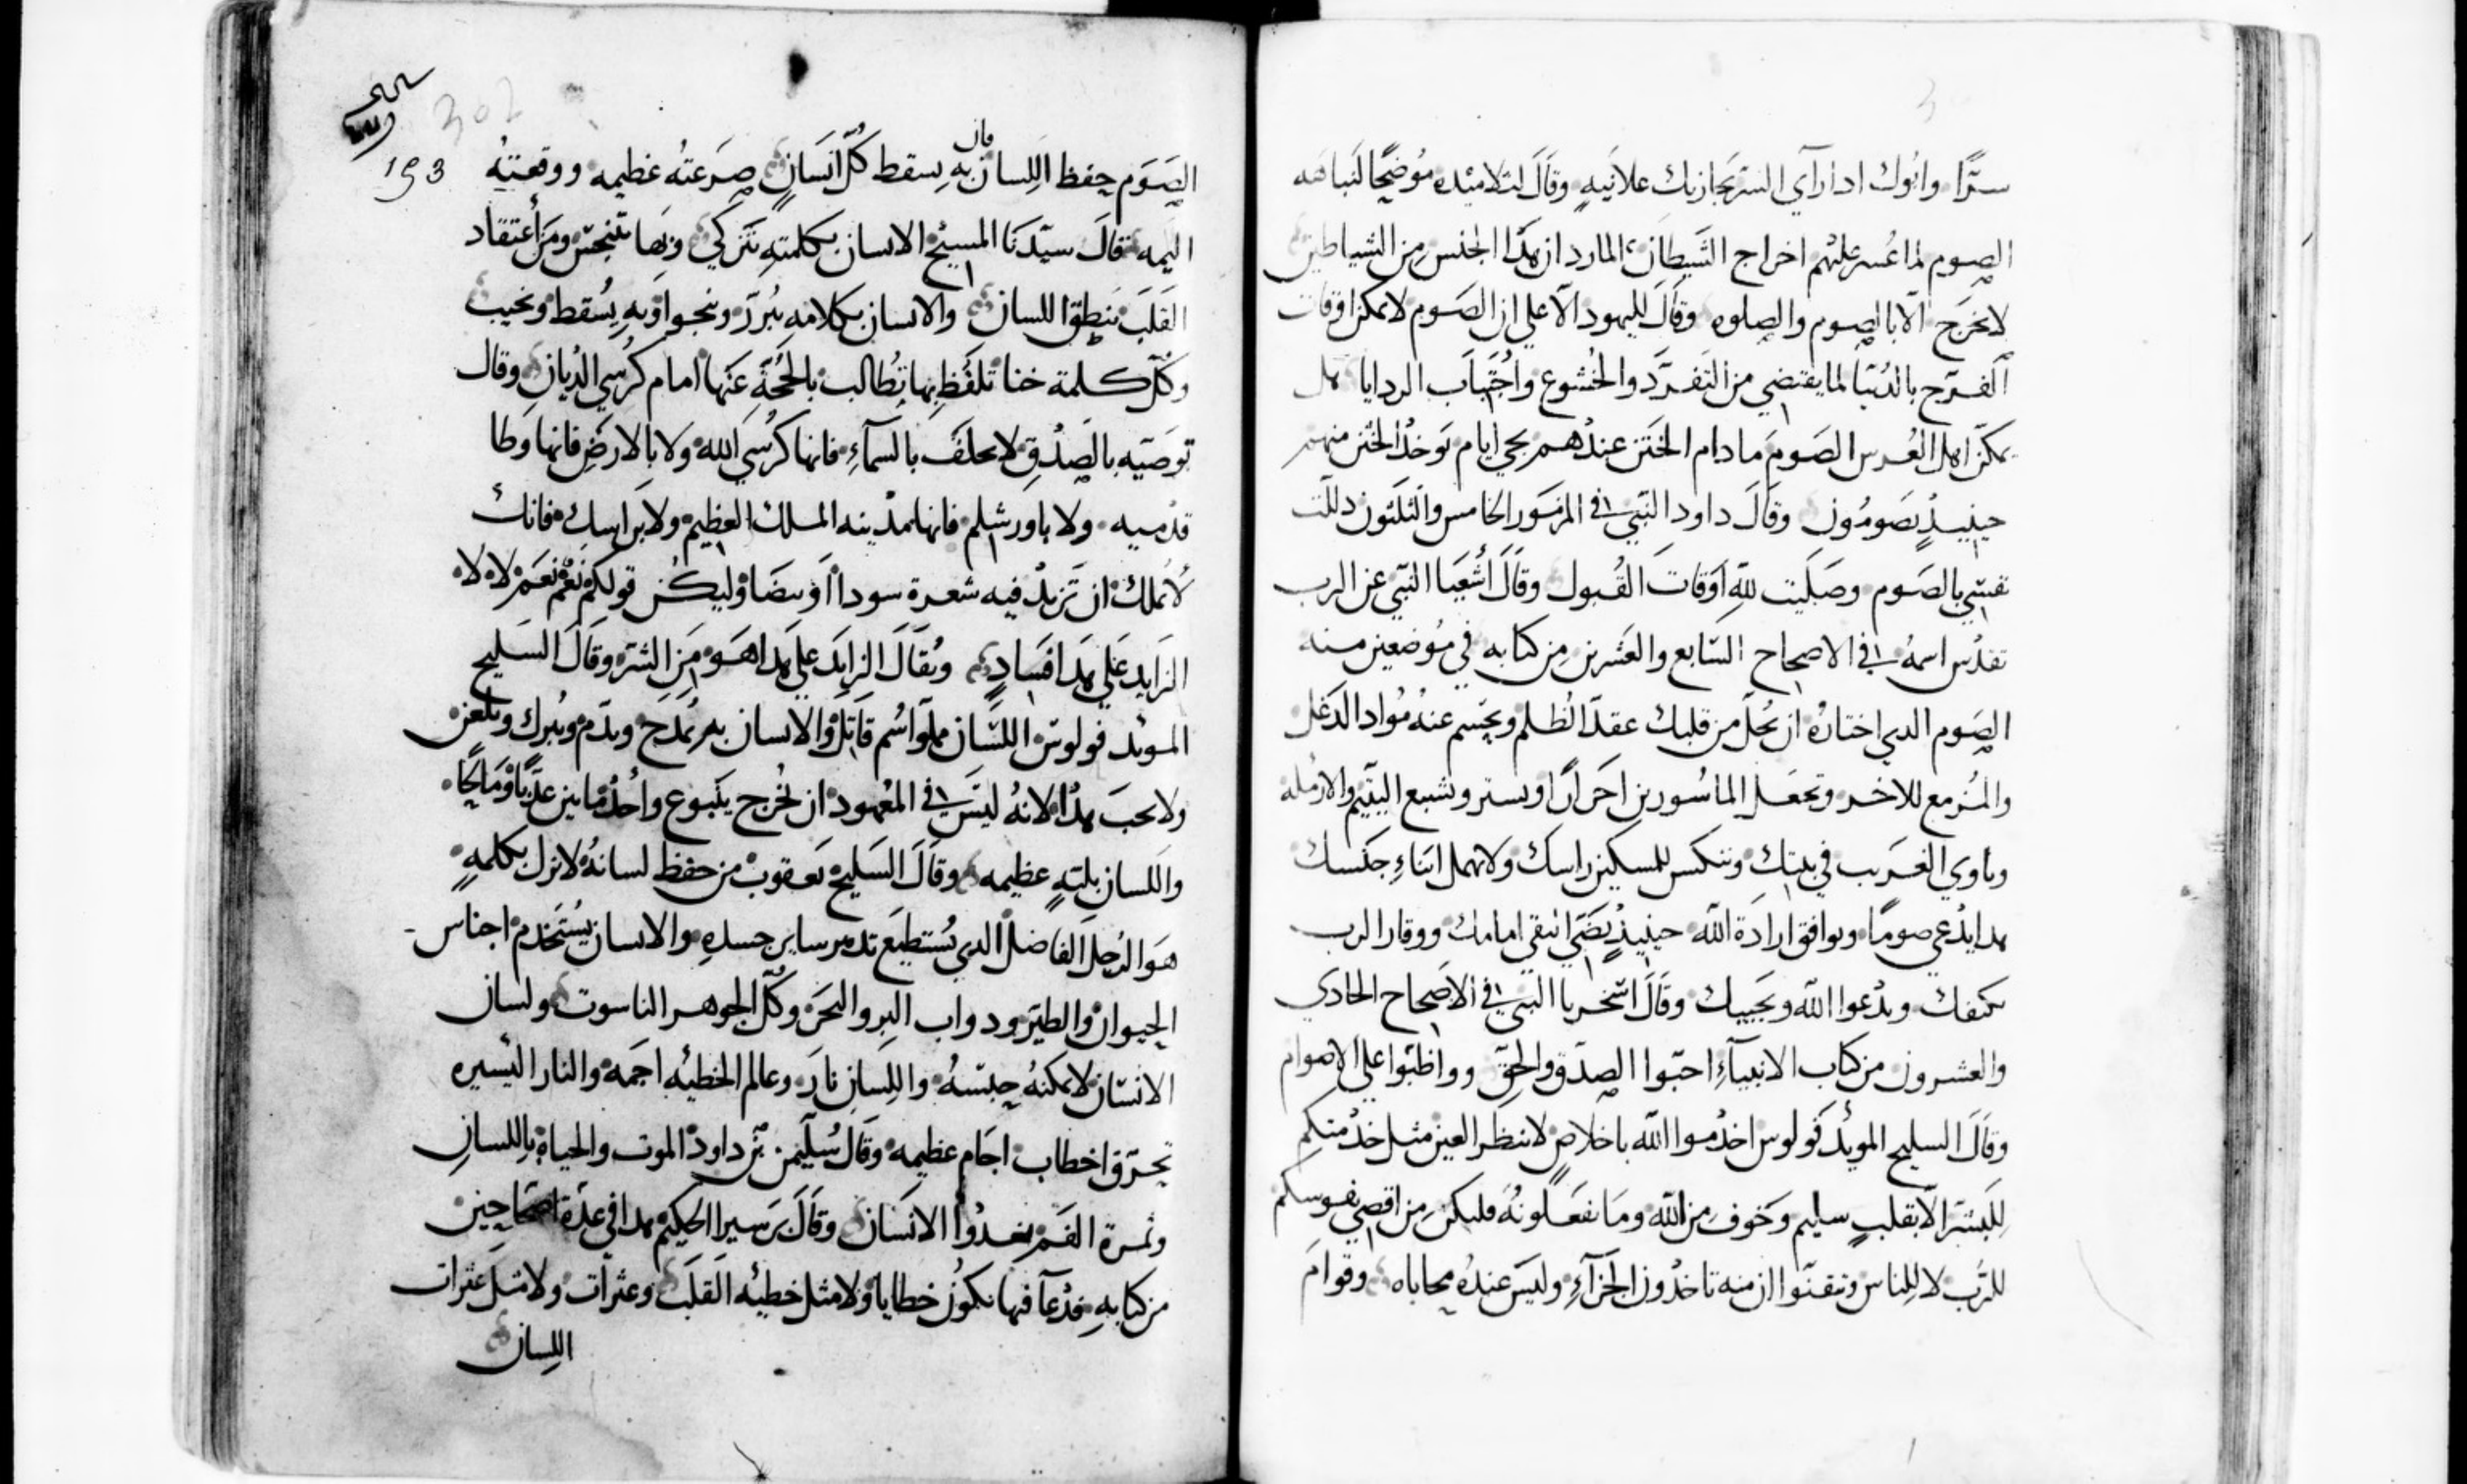 سرًّا وابوك اذا رآي السر يجازيك علانيهٍ وقال لتلاميذه موُضحًا لنباهته
الصوم لما عُسر عليهم اخراج الشيطان المارد ان هذا الجنس من الشياطين
لا يخرج الا بالصوم والصلوه وقال لليهود الاعلي ان الصوم لا يمكن اوقات
الفرح بالدُنيا لما يقتضي من التفرّد والخُشوع واجتهاب الردايا هل
يمكن اهل العُرس الصوم ما دام الختن عندهم يجي ايام يوخذ الختن منهم
حينيذٍ يصومُون وقال داود النبي في المزمور الخامس والثلثون ذللت
نفسي بالصوم وصليت لله اوقات القُبول وقال اشعيا النبي عن الرب
تقدس اسمهُ في الاصحاح السابع والعشرين من كتابه في موُضعين منه
الصوم الدي اختارهُ ان تحُل من قلبك عقد الظلم ويحسم عنهُ مُواد الدغل
والمُزمع للاخر وتجعل الماسُورين احرارًا وتستر وتشبع اليتيم والارمله
وياوي الغريب في بيتك وتنكس للمسكين راسك ولا تهمل ابناءِ جنسك
هدا يدُعي صومًا ويوافق ارادة الله حينيذٍ يضي انبقي امامك ووقار الرب
يكنفك ويدعوا الله ويجيبك وقال ازخريا النبي في الاصحاح الحادي
والعشرون من كتاب الانبياءِ احبوا الصدق والحق وواظبوا علي الاصوام
وقال السليح المويد فولوس اخدموا الله باخلاص لا بنظر العين مثل خدمتكم
للبشر الا بقلبٍ سليم وخوف من الله وما تفعلونهُ فليكن من اقصي نفوسكم
للرب لا للناس وتيقنوا ان منه تاخذون الجزآءِ وليس عندهُ محاباه وقوام
302
193
الصوم حفظ اللسان فان به يسقط كل انسان صرعتهُ عظيمه ووقعتهُ
اليمه قال سيدنا المسيح الانسان بكلمته يتزكي وبها يتنجس ومن اعتقاد
القلب ينطق اللسان والانسان بكلامه يُبرر وينجوا وبهِ يُسقط ويخيب
وكُل كلمة خنا تلفظ بها يُطالب بالحُجة عنها امام كرُسي الديان وقال
توصيه بالصدق لا يحلف بالسمآءِ فانها كرُسي الله ولا بالارض فانها وطا
قدميه ولا باورشلم فانها مدينه الملك العظيم ولا براسك فانك
لا تملك ان تزيد فيه شعرة سودا او بيضا وليكن قولكم نعم نعم لا لا
الزايد علي هدا فساد ويُقال الزايد علي هدا هو من الشر وقال السليح
المويد فولوس اللسان مملوا سُم قاتل والانسان به يمُدح ويذم ويُبرك ويلعن
ولا يجب هدا لانهُ ليس في المعهود ان يُخرج ينبوع واحدُ ماين عدبًا ومالحًا
واللسان بليهٍ عظيمه وقال السليح يعقوب من حفظ لسانهُ لا يزل بكلمهٍ
هو الرجل الفاضل الدي يُستطيع تدبير ساير جسده والانسان يُستخدم اجناس
الحيوان والطير ودواب البر والبحر وكُل الجوهر الناسوت ولسان
الانسان لا يمكنهُ حبسهُ واللسان نار وعالم الخطيه اجمه والنار اليسيره
تحرق اخطاب اجام عظيمه وقال سُليمن بن داود الموت والحياه باللسان
وثمرة الفم يغدُوا الانسان وقال برسيرا الحكيم هدا في عدة اصحاحين
من كتابه فدعا فيها تكون خطايا ولا مثل خطيه القلب وعثرات ولا مثل عثرات
اللسان